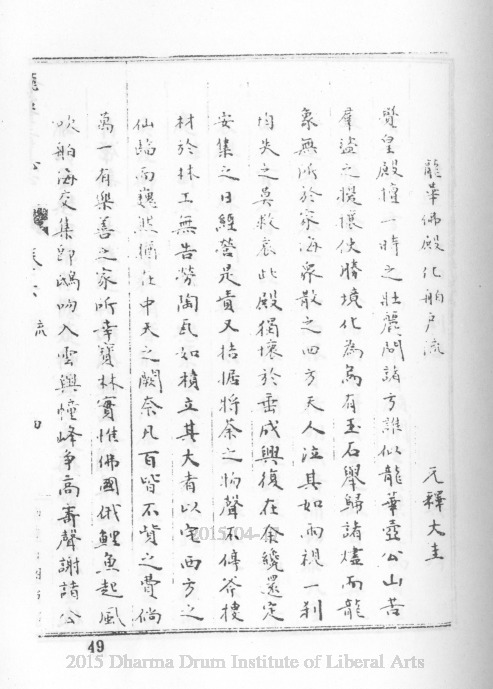 龍華佛殿化舶戶疏
元釋大圭
覺皇殿擅一時之壯麗問諸方誰似龍華壺公山苦
羣盜之攪攘使勝境化為烏有玉石舉歸諸燼而龍
象無所於家海眾散之四方天人泣其如雨視一剎
均失之莫救哀此殿獨壞於垂成興復在余纔還定
安集之日經營是責又拮据將荼之物聲不停斧樓
材於林工無告勞陶瓦如積立其大者以宅西方之
仙歸而巍然猶在中天之闕奈凡百皆不貲之費倘
萬一有樂善之家所幸寶林實惟佛國俄鯉魚起風
吹舶海交集郢鴟吻入雲與幢峰爭高寄聲謝諸公
49
2015 Dharma Drum Institute of Liberal Arts